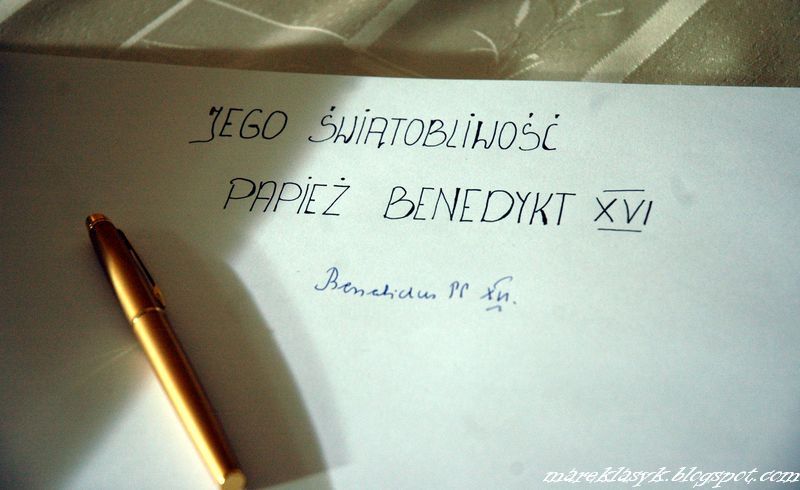 JEGO ŚWIĄTOBLIWOŚĆ
PAPIEŻ BENEDYKT XVI
Benedictus PP XVI.
mareklasyk.blogspot.com